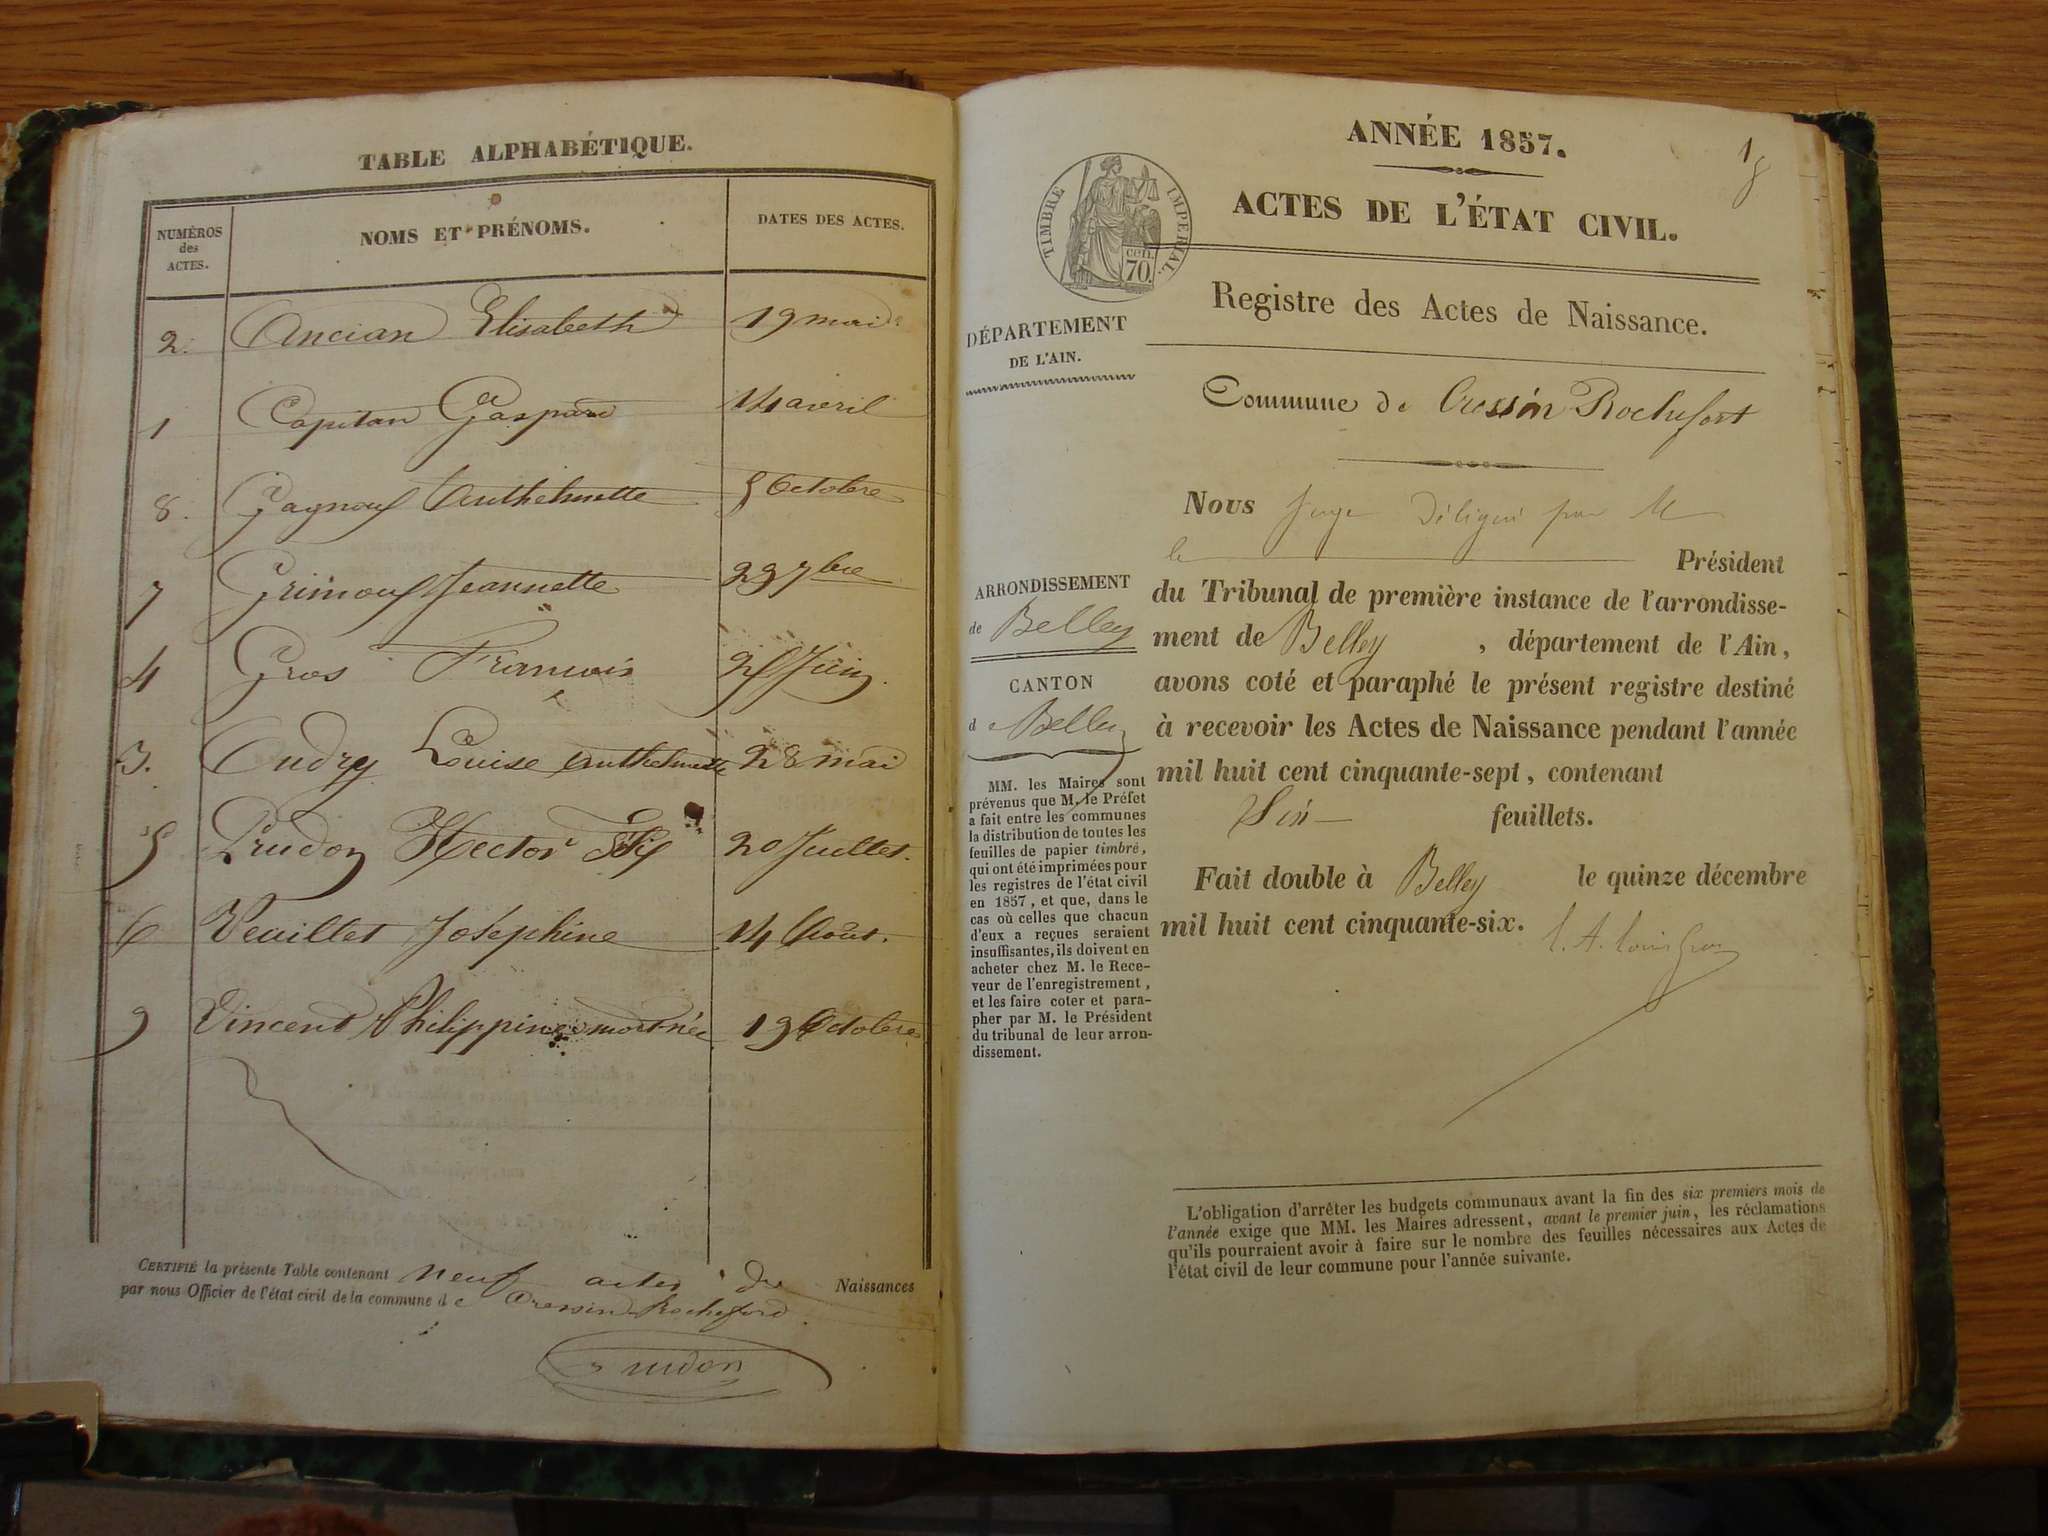 TABLE ALPHABÉTIQUE.
NUMÉROS des ACTES.
NOMS ET PRÉNOMS.
DATES DES ACTES.
2. Ancian Elisabeth 19 mai
1 Capitan Gaspard 14 avril
8. Gagnoux Anthelmette 5 Octobre
7 Grimoux Jeannette 22 7bre
4 Gros François 25 Juin.
3. Oudry Louise Anthelmette 28 mai
5 Prudon Hector 20 Juillet.
6 Veuillet Joséphine 14 Août.
9 Vincent Philippine mort-née 19 Octobre
CERTIFIÉ la présente Table contenant neuf actes de Naissances
par nous Officier de l'état civil de la commune de Cressin Rochefort.
Prudon
1
ANNÉE 1857.
ACTES DE L'ÉTAT CIVIL.
TIMBRE IMPÉRIAL.
70 cen.
Registre des Actes de Naissance.
DÉPARTEMENT
DE L'AIN.
Commune de Cressin Rochefort
ARRONDISSEMENT
de Belley
CANTON
de Belley
MM. les Maires sont
prévenus que M. le Préfet
a fait entre les communes
la distribution de toutes les
feuilles de papier timbré,
qui ont été imprimées pour
les registres de l'état civil
en 1857, et que, dans le
cas où celles que chacun
d'eux a reçues seraient
insuffisantes, ils doivent en
acheter chez M. le Rece-
veur de l'enregistrement,
et les faire coter et para-
pher par M. le Président
du tribunal de leur arron-
dissement.
Nous Juge Délégué par M
le Président
du Tribunal de première instance de l'arrondisse-
ment de Belley, département de l'Ain,
avons coté et paraphé le présent registre destiné
à recevoir les Actes de Naissance pendant l'année
mil huit cent cinquante-sept, contenant
Six feuillets.
Fait double à Belley le quinze décembre
mil huit cent cinquante-six.
L'obligation d'arrêter les budgets communaux avant la fin des six premiers mois de
l'année exige que MM. les Maires adressent, avant le premier juin, les réclamations
qu'ils pourraient avoir à faire sur le nombre des feuilles nécessaires aux Actes de
l'état civil de leur commune pour l'année suivante.